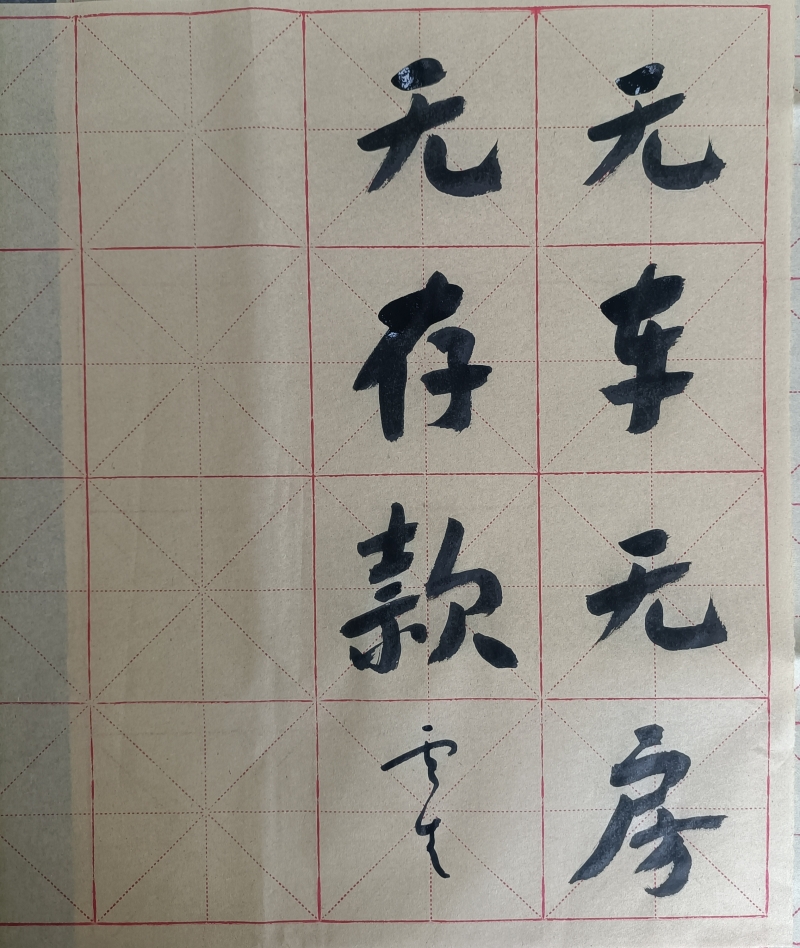 无车无房
无存款